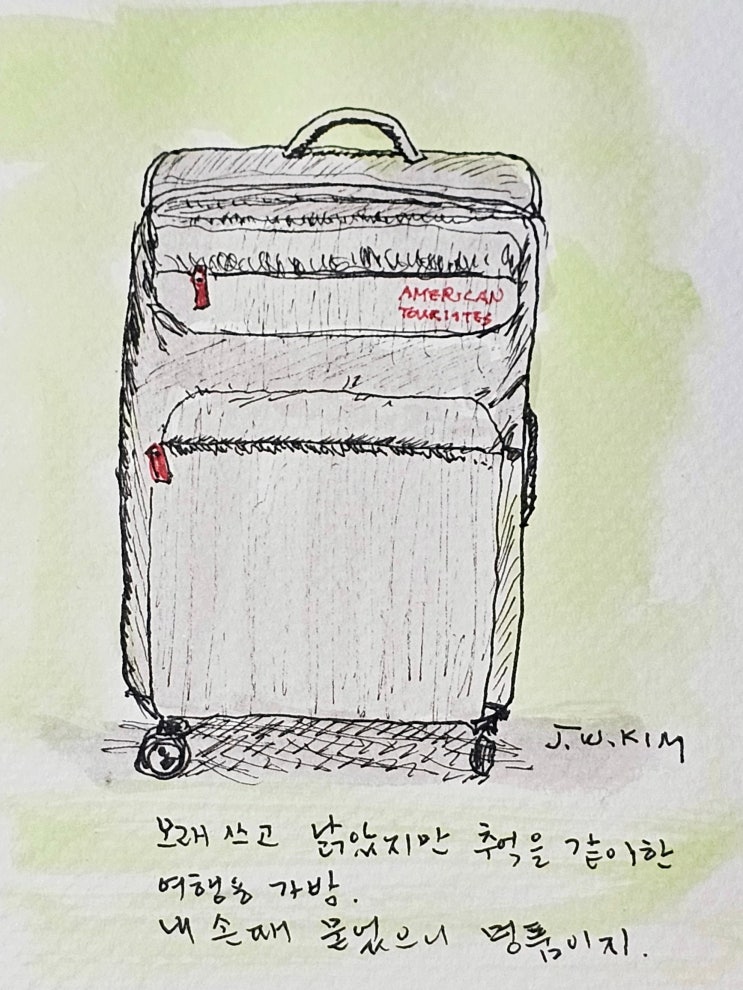 AMERICAN
TOURISTES
J.W.KIM
오래 쓰고 낡았지만 추억을 같이한
여행용 가방.
내 손때 묻었으니 명품이지.